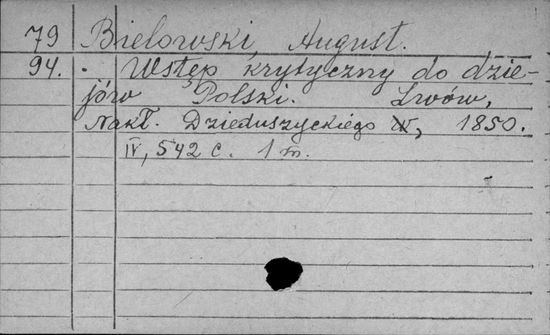 79 Bielowski, August.
94. Wstęp krytyczny do dzie-
jów Polski. Lwów,
Nakł. Dzieduszyckiego W, 1850.
IV, 542 c. 1 т.